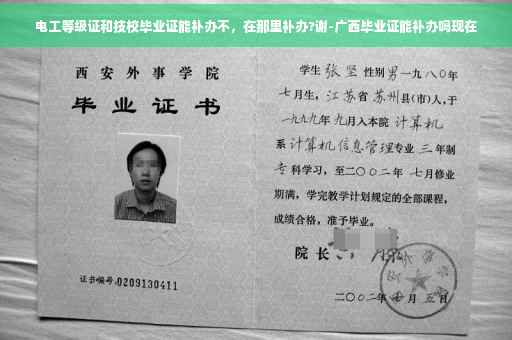 电工等级证和技校毕业证能补办不，在那里补办?谢-广西毕业证能补办吗现在
西安外事学院
毕业证书
证书编号:0209130411
学生 张坚 性别 男 一九八〇年
七月生，江苏省 苏州县(市)人，于
一九九九年 九月入本院 计算机
系 计算机信息管理专业 三年制
专科学习，至二〇〇二年 七月修业
期满，学完教学计划规定的全部课程，
成绩合格，准予毕业。
院长
二〇〇二年 月 五日